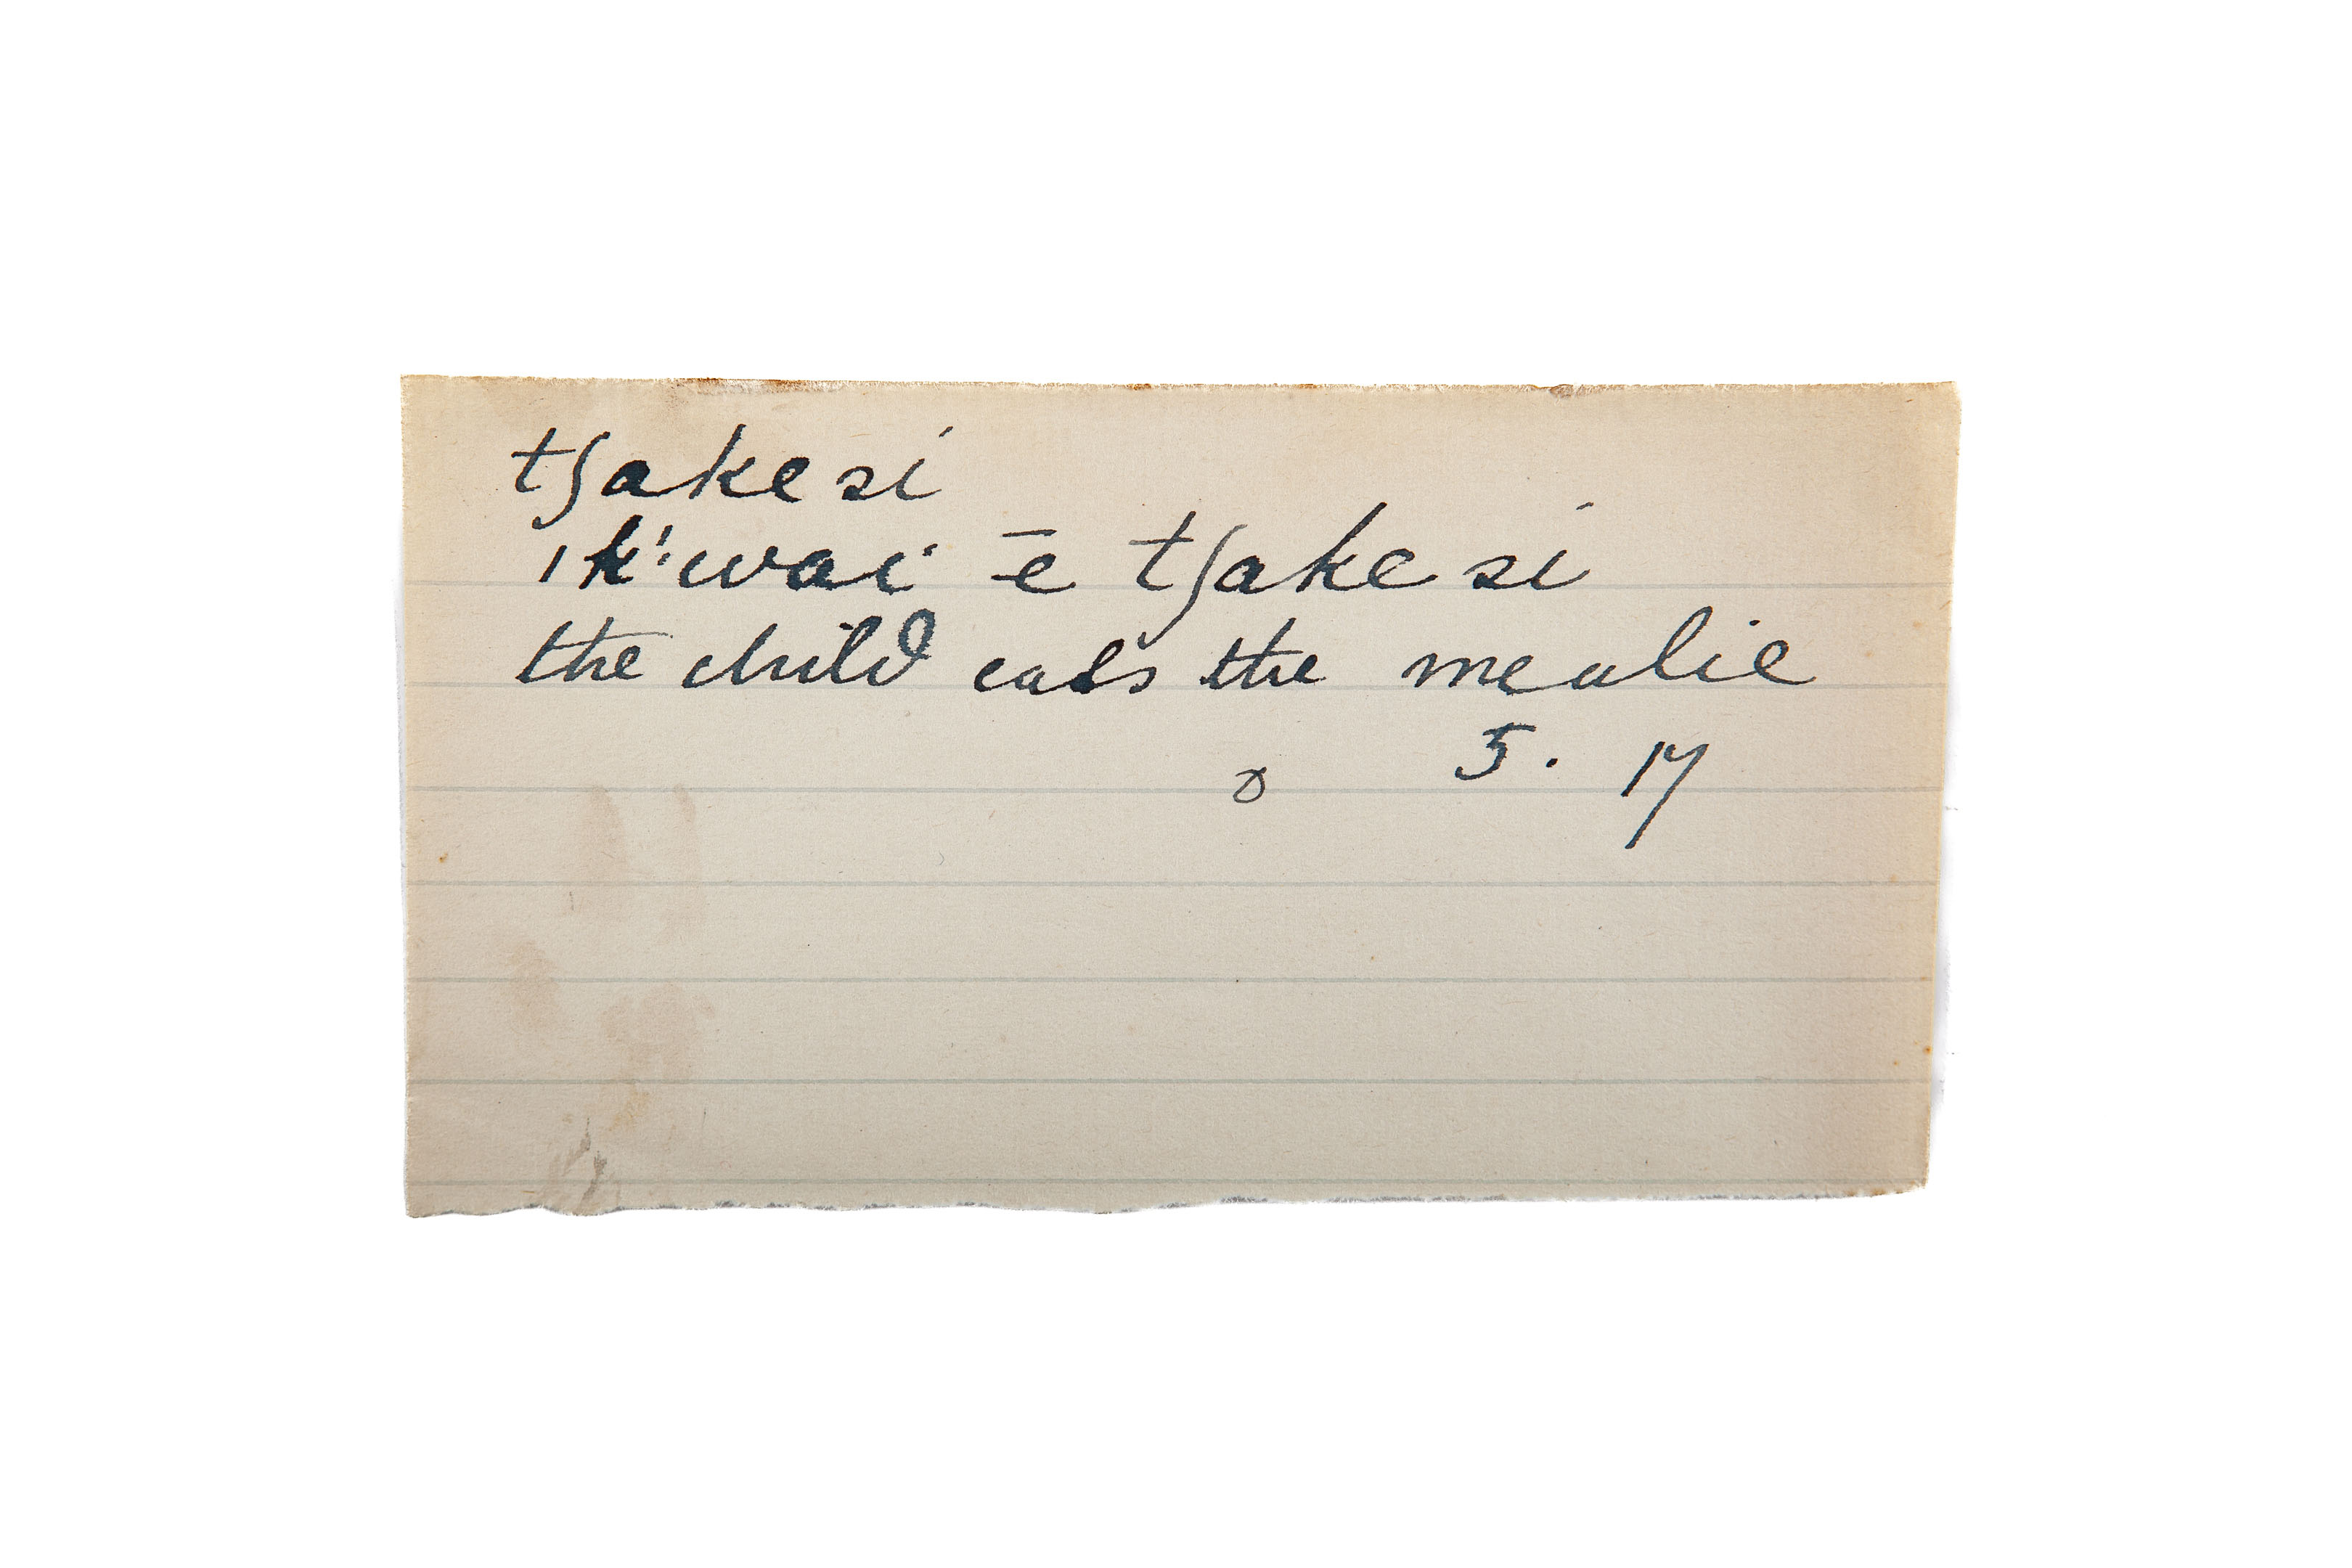 tʃake si
ǀk'wai ē tʃake si
the child eats the mealie
5. 17